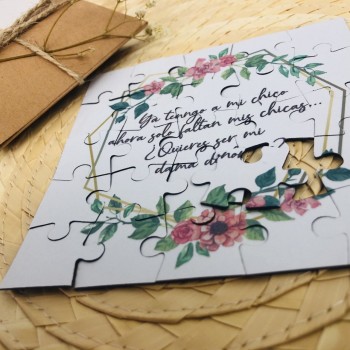 Ya tengo a mi chico
ahora solo faltan mis chicas...
¿Quieres ser mi
dama de honor